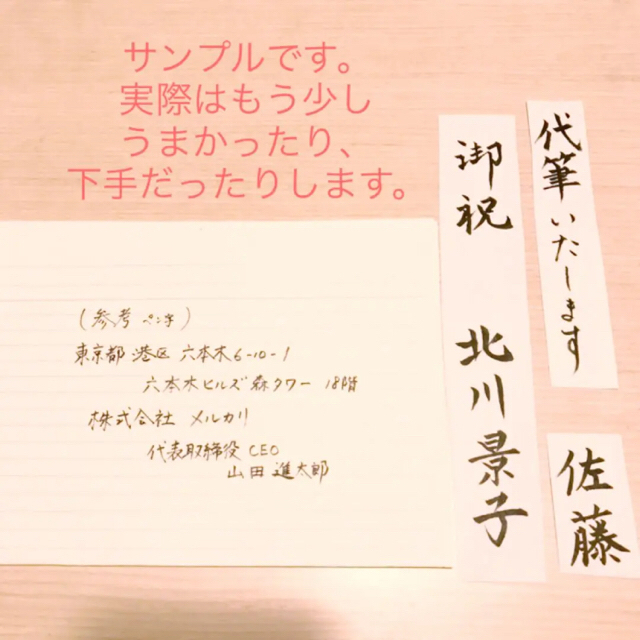 サンプルです。
実際はもう少し
うまかったり、
下手だったりします。
代筆いたします
御祝 北川景子
佐藤
(参考 ペン字)
東京都 港区 六本木6-10-1
六本木ヒルズ森タワー 18階
株式会社 メルカリ
代表取締役 CEO
山田 進太郎